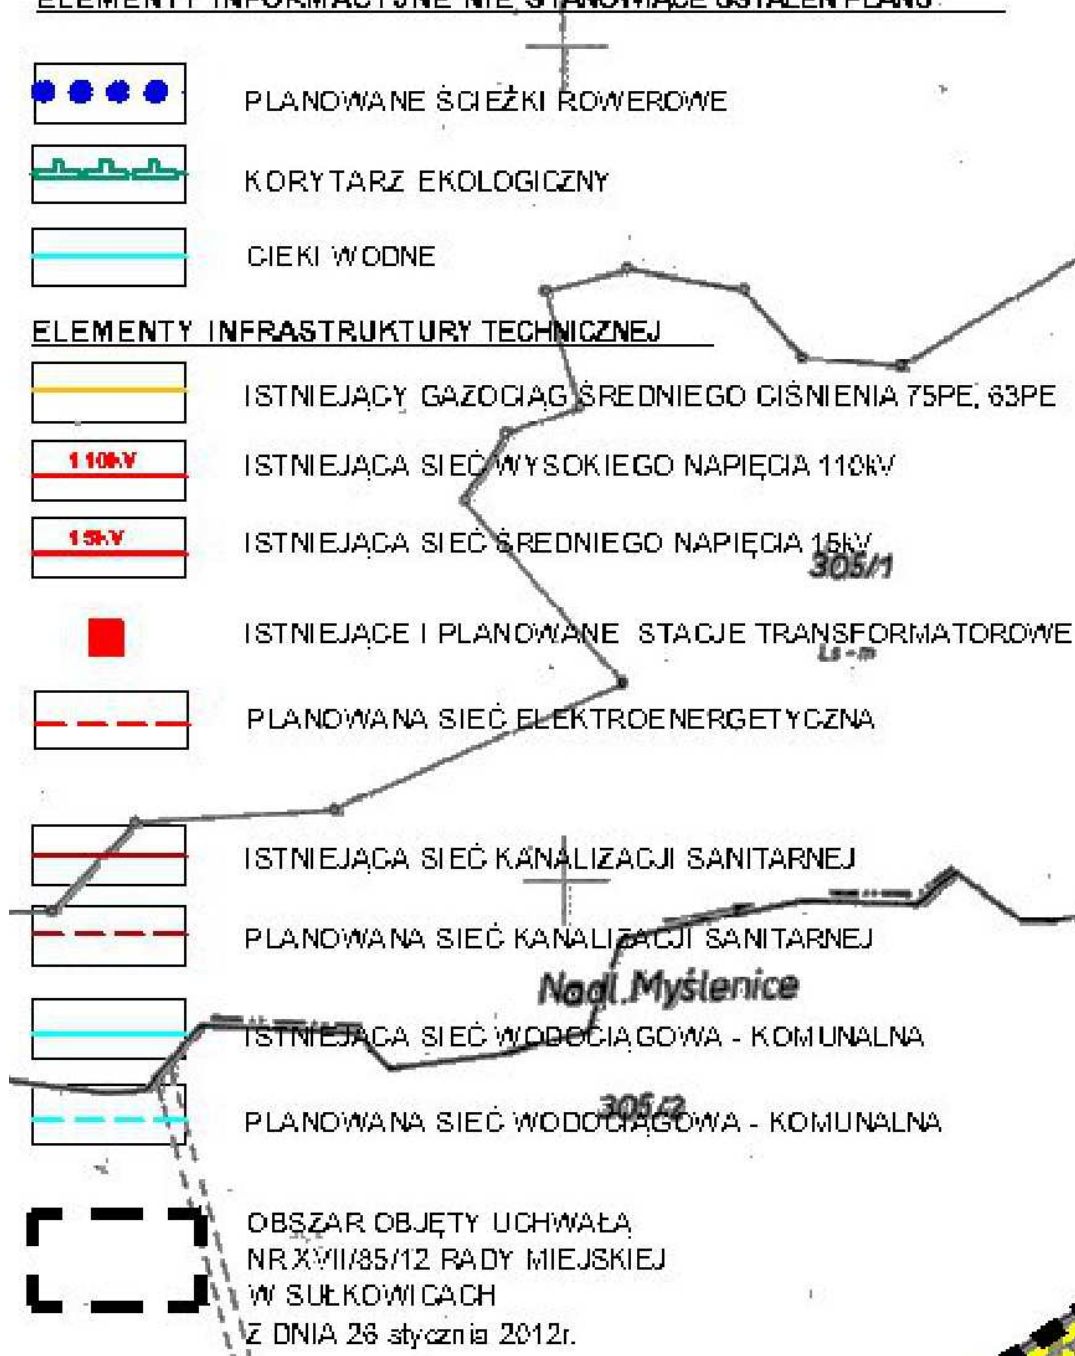 ELEMENTY INFORMACYJNE NIE STANOWIĄCE USTALEŃ PLANU
PLANOWANE ŚCIEŻKI ROWEROWE
KORYTARZ EKOLOGICZNY
CIEKI WODNE
ELEMENTY INFRASTRUKTURY TECHNICZNEJ
ISTNIEJĄCY GAZOCIĄG ŚREDNIEGO CIŚNIENIA 75PE, 63PE
110kV
ISTNIEJĄCA SIEĆ WYSOKIEGO NAPIĘCIA 110kV
15kV
ISTNIEJĄCA SIEĆ ŚREDNIEGO NAPIĘCIA 15kV
305/1
ISTNIEJĄCE I PLANOWANE STACJE TRANSFORMATOROWE
Ls-m
PLANOWANA SIEĆ ELEKTROENERGETYCZNA
ISTNIEJĄCA SIEĆ KANALIZACJI SANITARNEJ
PLANOWANA SIEĆ KANALIZACJI SANITARNEJ
Nadl.Myślenice
ISTNIEJĄCA SIEĆ WODOCIĄGOWA - KOMUNALNA
305/2
PLANOWANA SIEĆ WODOCIĄGOWA - KOMUNALNA
OBSZAR OBJĘTY UCHWAŁĄ
NR XVII/85/12 RADY MIEJSKIEJ
W SUŁKOWICACH
Z DNIA 26 stycznia 2012r.